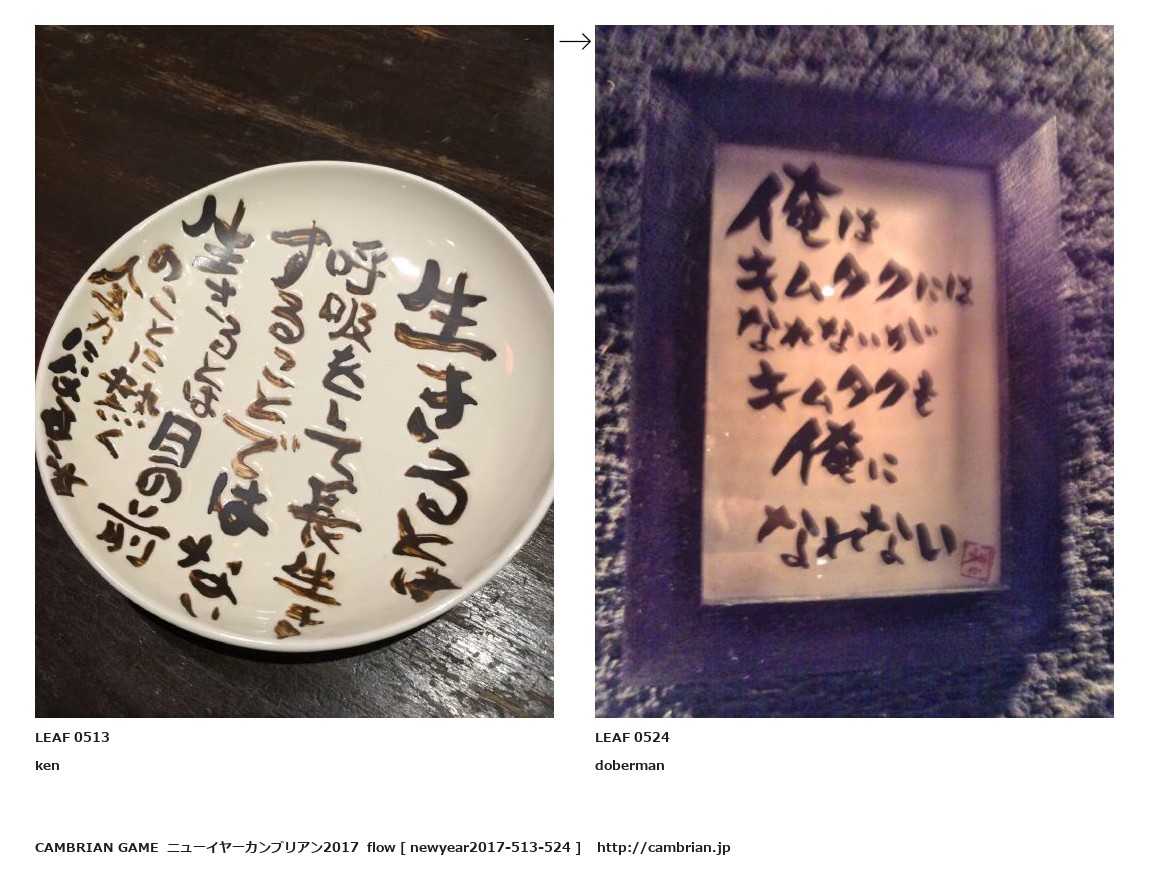 生きるとは
呼吸をして長生き
することではない
生きるとは目の前
のことに熱く
俺は
キムタクには
なれないが
キムタクも
俺に
なれない
LEAF 0513
ken
LEAF 0524
doberman
CAMBRIAN GAME ニューイヤーカンブリアン2017 flow [ newyear2017-513-524 ] http://cambrian.jp